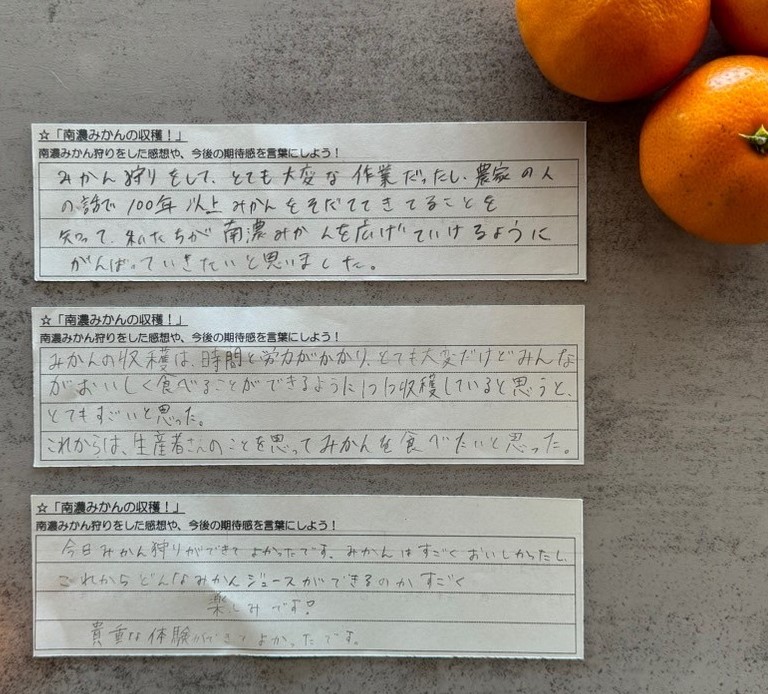 ☆「南濃みかんの収穫！」
南濃みかん狩りをした感想や、今後の期待感を言葉にしよう！
みかん狩りをして、とても大変な作業だったし、農家の人
の話で100年以上みかんをそだててきてることを
知って、私たちが南濃みかんを広げていけるように
がんばっていきたいと思いました。
☆「南濃みかんの収穫！」
南濃みかん狩りをした感想や、今後の期待感を言葉にしよう！
みかんの収穫は、時間と労力がかかり、とても大変だけどみんな
がおいしく食べることができるように1つ1つ収穫していると思うと、
とてもすごいと思った。
これからは、生産者さんのことを思ってみかんを食べたいと思った。
☆「南濃みかんの収穫！」
南濃みかん狩りをした感想や、今後の期待感を言葉にしよう！
今日みかん狩りができてよかったです。みかんはすごくおいしかったし、
これからどんなみかんジュースができるのかすごく
楽しみです！
貴重な体験ができてよかったです。